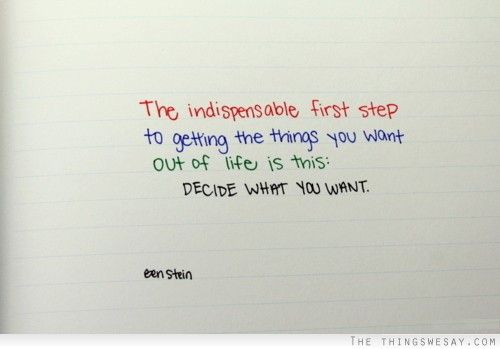 The indispensable first step
to getting the things you want
out of life is this:
DECIDE WHAT YOU WANT.
ben stein
THE THINGSWESAY.COM